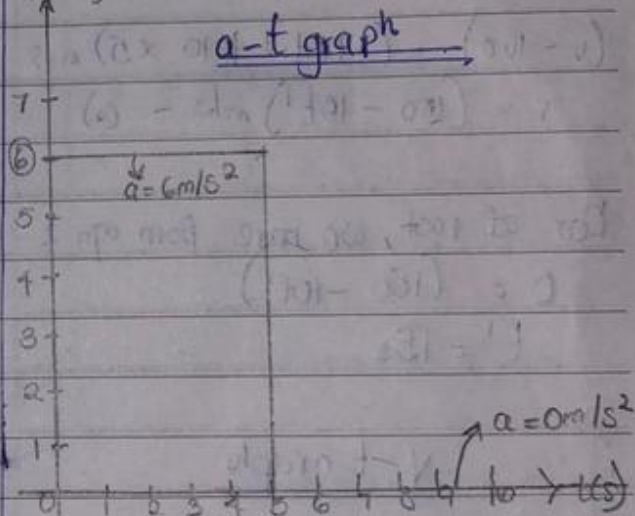 a-t graph
7
6
a = 6m/s²
5
4
3
2
1
a = 0m/s²
0 1 2 3 4 5 6 7 8 9 10 t(s)